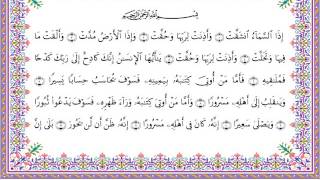 بِسْمِ ٱللَّهِ ٱلرَّحْمَٰنِ ٱلرَّحِيمِ
إِذَا ٱلسَّمَآءُ ٱنشَقَّتْ ۝ وَأَذِنَتْ لِرَبِّهَا وَحُقَّتْ ۝ وَإِذَا ٱلْأَرْضُ مُدَّتْ ۝ وَأَلْقَتْ مَا
فِيهَا وَتَخَلَّتْ ۝ وَأَذِنَتْ لِرَبِّهَا وَحُقَّتْ ۝ يَٰٓأَيُّهَا ٱلْإِنسَٰنُ إِنَّكَ كَادِحٌ إِلَىٰ رَبِّكَ كَدْحًا
فَمُلَٰقِيهِ ۝ فَأَمَّا مَنْ أُوتِىَ كِتَٰبَهُۥ بِيَمِينِهِۦ ۝ فَسَوْفَ يُحَاسَبُ حِسَابًا يَسِيرًا ۝
وَيَنقَلِبُ إِلَىٰٓ أَهْلِهِۦ مَسْرُورًا ۝ وَأَمَّا مَنْ أُوتِىَ كِتَٰبَهُۥ وَرَآءَ ظَهْرِهِۦ ۝ فَسَوْفَ يَدْعُوا۟ ثُبُورًا
۝ وَيَصْلَىٰ سَعِيرًا ۝ إِنَّهُۥ كَانَ فِىٓ أَهْلِهِۦ مَسْرُورًا ۝ إِنَّهُۥ ظَنَّ أَن لَّن يَحُورَ ۝ بَلَىٰٓ إِنَّ